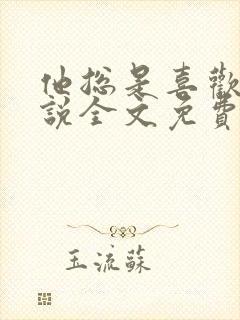 他總是喜歡
說全文免費
玉流蘇